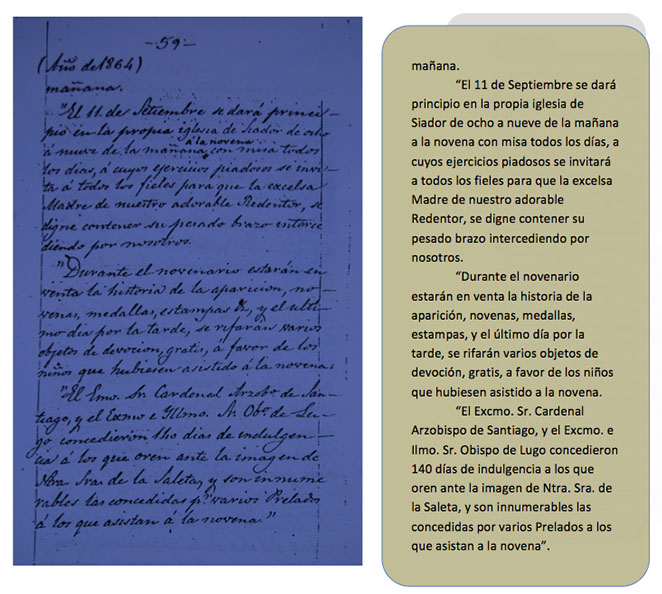 - 59 -
(Año de 1864)
mañana.
"El 11 de Setiembre se dará princi-
pio en la propia iglesia de Siador de ocho
á nueve de la mañana á la novena con misa todos
los dias, á cuyos ejercicios piadosos se invi-
ta á todos los fieles para que la excelsa
Madre de nuestro adorable Redentor, se
digne contener su pesado brazo interce-
diendo por nosotros.
"Durante el novenario estarán en
venta la historia de la aparicion, no-
venas, medallas, estampas &, y el ulti-
mo dia por la tarde, se rifarán varios
objetos de devocion, gratis, á favor de los
niños que hubiesen asistido á la novena.
"El Emo. Sr. Cardenal Arzobo. de San-
tiago, y el Exmo é Illmo. Sr. Obo. de Lu-
go concedieron 140 dias de indulgen-
cia á los que oren ante la imagen de
Ntra. Sra. de la Saleta, y son innume-
rables las concedidas pr. varios Prelados
á los que asistan á la novena."
mañana.
"El 11 de Septiembre se dará
principio en la propia iglesia de
Siador de ocho a nueve de la mañana
a la novena con misa todos los días, a
cuyos ejercicios piadosos se invitará
a todos los fieles para que la excelsa
Madre de nuestro adorable
Redentor, se digne contener su
pesado brazo intercediendo por
nosotros.
"Durante el novenario
estarán en venta la historia de la
aparición, novenas, medallas,
estampas, y el último día por la
tarde, se rifarán varios objetos de
devoción, gratis, a favor de los niños
que hubiesen asistido a la novena.
"El Excmo. Sr. Cardenal
Arzobispo de Santiago, y el Excmo. e
Ilmo. Sr. Obispo de Lugo concedieron
140 días de indulgencia a los que
oren ante la imagen de Ntra. Sra. de
la Saleta, y son innumerables las
concedidas por varios Prelados a los
que asistan a la novena”.